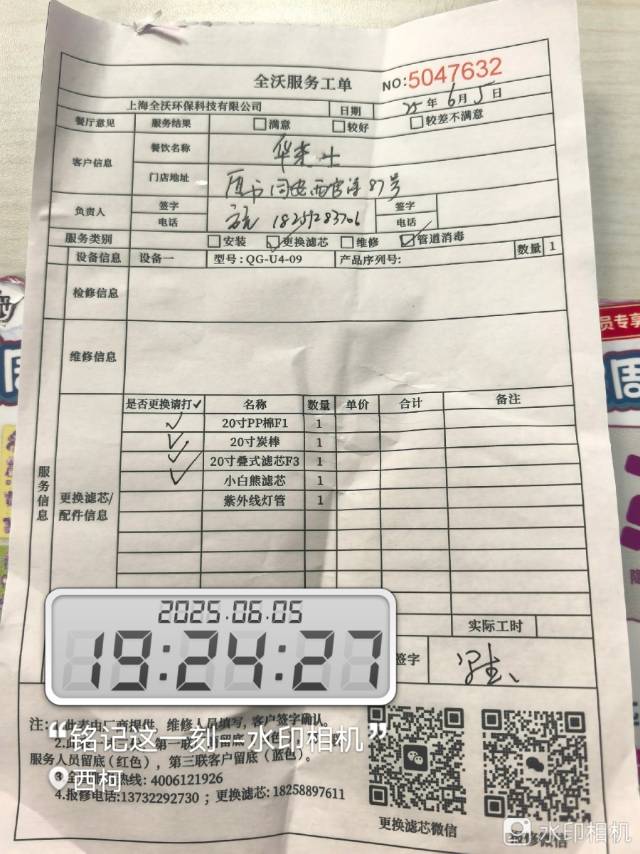 全沃服务工单
NO:5047632
上海全沃环保科技有限公司 日期 25年6月5日
餐厅意见 服务结果 □满意 □较好 □较差不满意
客户信息 餐饮名称 华莱士
门店地址 87号
负责人 签字 签字
电话 18259283706 电话
服务类别 □安装 ☑更换滤芯 □维修 ☑管道消毒
设备信息 设备一 型号:QG-U4-09 产品序列号: 数量 1
检修信息
维修信息
服务信息
更换滤芯/配件信息
是否更换请打✓ 名称 数量 单价 合计 备注
✓ 20寸PP棉F1 1
✓ 20寸炭棒 1
✓ 20寸叠式滤芯F3 1
✓ 小白熊滤芯 1
紫外线灯管 1
实际工时
签字
2025.06.05
19:24:27
注:1.此表由厂商提供,维修人员填写,客户签字确认。
第一联
服务人员留底(红色),第三联客户留底(蓝色)。
热线:4006121926
4.报修电话:13732292730;更换滤芯:18258897611
“铭记这一刻-水印相机”
西柯
更换滤芯微信
报修微信
水印相机
员专享
周